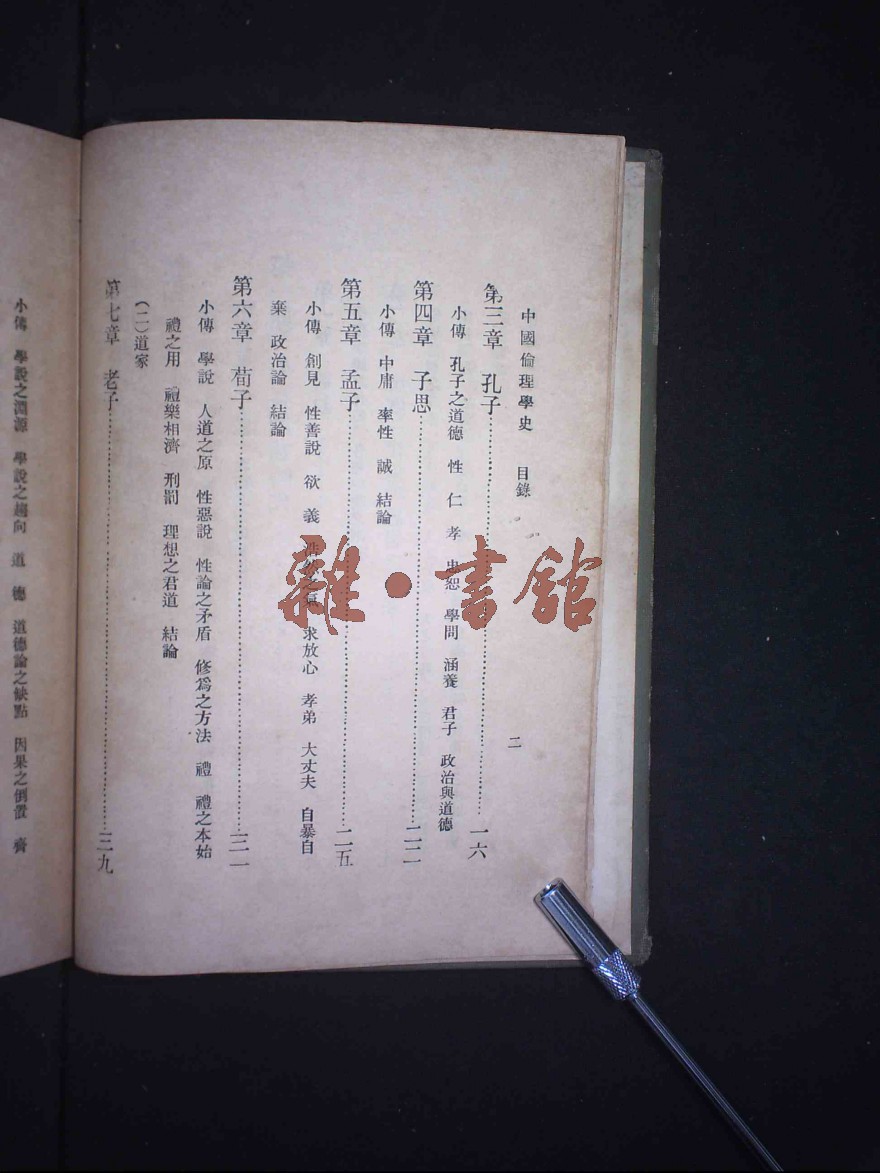 中國倫理學史 目錄 二
第三章 孔子 一六
小傳 孔子之道德 性 仁 孝 忠恕 學問 涵養 君子 政治與道德
第四章 子思 二二
小傳 中庸 率性 誠 結論
第五章 孟子 二五
小傳 創見 性善說 欲 義 浩然之氣 求放心 孝弟 大丈夫 自暴自
棄 政治論 結論
第六章 荀子 三一
小傳 學說 人道之原 性惡說 性論之矛盾 修爲之方法 禮 禮之本始
禮之用 禮樂相濟 刑罰 理想之君道 結論
(二)道家
第七章 老子 三九
小傳 學說之淵源 學說之趨向 道 德 道德論之缺點 因果之倒置 齊
雜·書館